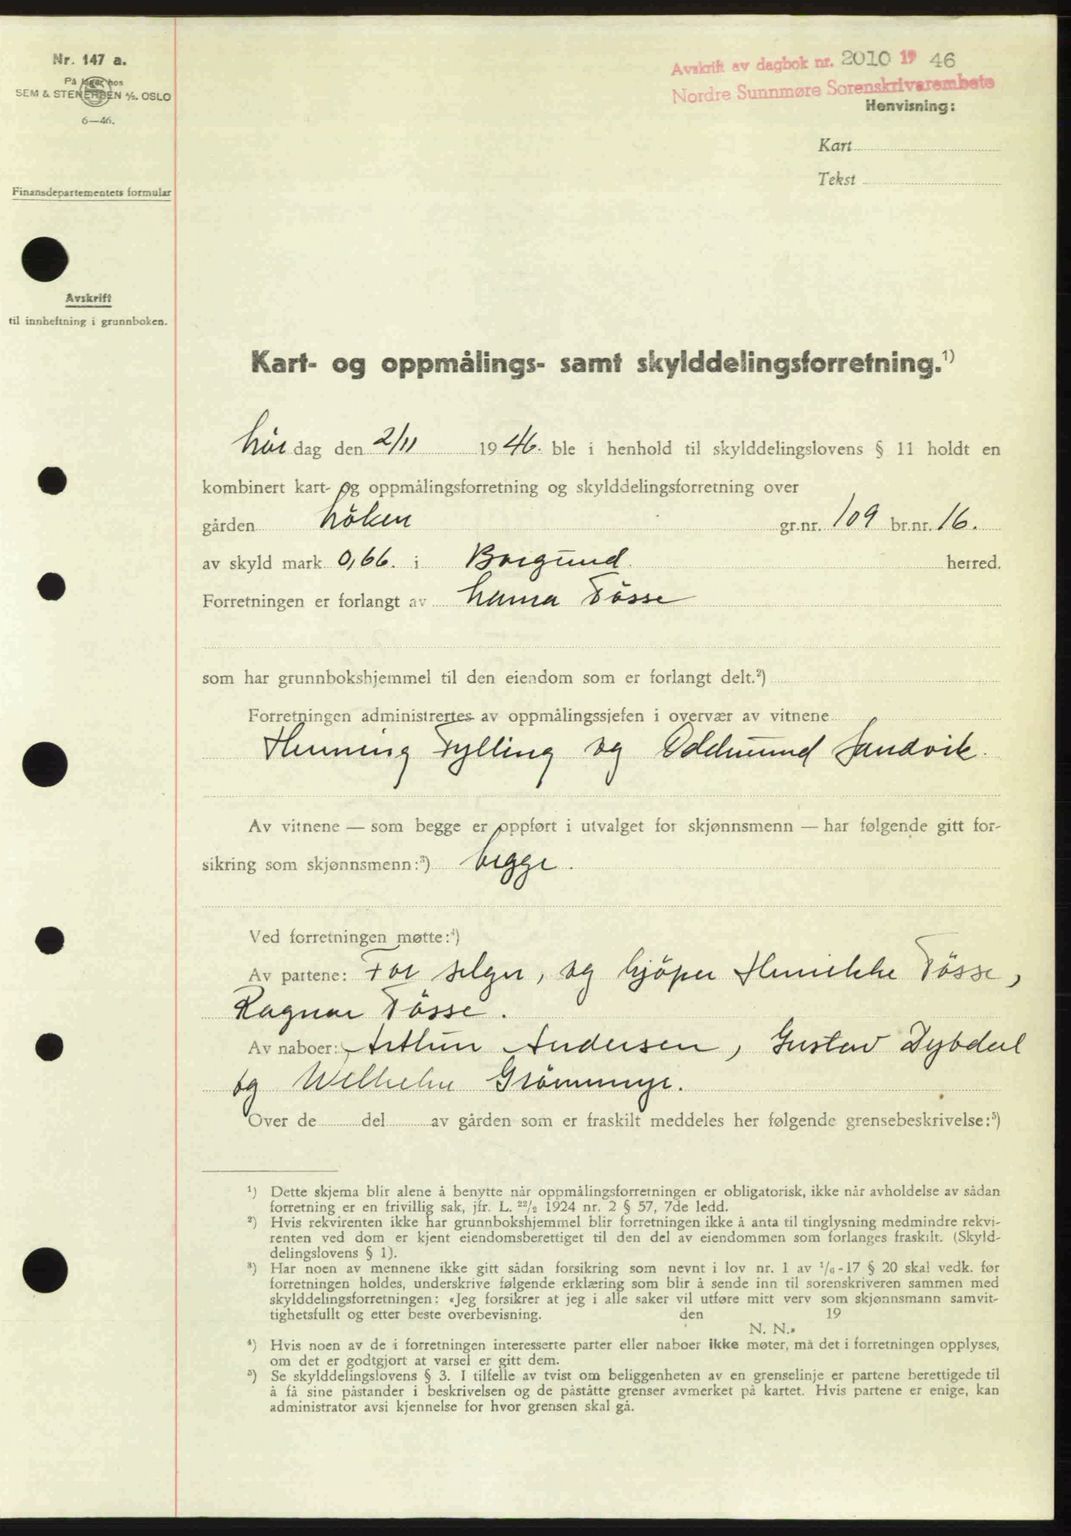 Nr. 147 a.
På lager hos
SEM & STENERSEN A/S. OSLO
6—46.
Finansdepartementets formular
Avskrift
til innheftning i grunnboken.
Avskrift av dagbok nr. 2010 19 46
Nordre Sunnmøre Sorenskriverembete
Henvisning:
Kart
Tekst
Kart- og oppmålings- samt skylddelingsforretning.¹)
Lør dag den 2/11 1946. ble i henhold til skylddelingslovens § 11 holdt en
kombinert kart- og oppmålingsforretning og skylddelingsforretning over
gården gr.nr. 109 br.nr. 16.
av skyld mark 0,66. i Borgund. herred.
Forretningen er forlangt av Tösse
som har grunnbokshjemmel til den eiendom som er forlangt delt.²)
Forretningen administrertes av oppmålingssjefen i overvær av vitnene
Henning Fylling og Oddmund Sandvik.
Av vitnene — som begge er oppført i utvalget for skjønnsmenn — har følgende gitt for-
sikring som skjønnsmenn:³) begge.
Ved forretningen møtte:⁴)
Av partene: For selger, og kjöper Henrikke Tösse,
Ragnar Tösse.
Av naboer: Arthur Andersen, Gustav Dybdal
og Wilhelm Grömmyr.
Over de del av gården som er fraskilt meddeles her følgende grensebeskrivelse:⁵)
¹) Dette skjema blir alene å benytte når oppmålingsforretningen er obligatorisk, ikke når avholdelse av sådan
forretning er en frivillig sak, jfr. L. ²²/₂ 1924 nr. 2 § 57, 7de ledd.
²) Hvis rekvirenten ikke har grunnbokshjemmel blir forretningen ikke å anta til tinglysning medmindre rekvi-
renten ved dom er kjent eiendomsberettiget til den del av eiendommen som forlanges fraskilt. (Skyld-
delingslovens § 1).
³) Har noen av mennene ikke gitt sådan forsikring som nevnt i lov nr. 1 av ¹/₆-17 § 20 skal vedk. før
forretningen holdes, underskrive følgende erklæring som blir å sende inn til sorenskriveren sammen med
skylddelingsforretningen: «Jeg forsikrer at jeg i alle saker vil utføre mitt verv som skjønnsmann samvit-
tighetsfullt og etter beste overbevisning. den 19
N. N.»
⁴) Hvis noen av de i forretningen interesserte parter eller naboer ikke møter, må det i forretningen opplyses,
om det er godtgjort at varsel er gitt dem.
⁵) Se skylddelingslovens § 3. I tilfelle av tvist om beliggenheten av en grenselinje er partene berettigede til
å få sine påstander i beskrivelsen og de påståtte grenser avmerket på kartet. Hvis partene er enige, kan
administrator avsi kjennelse for hvor grensen skal gå.